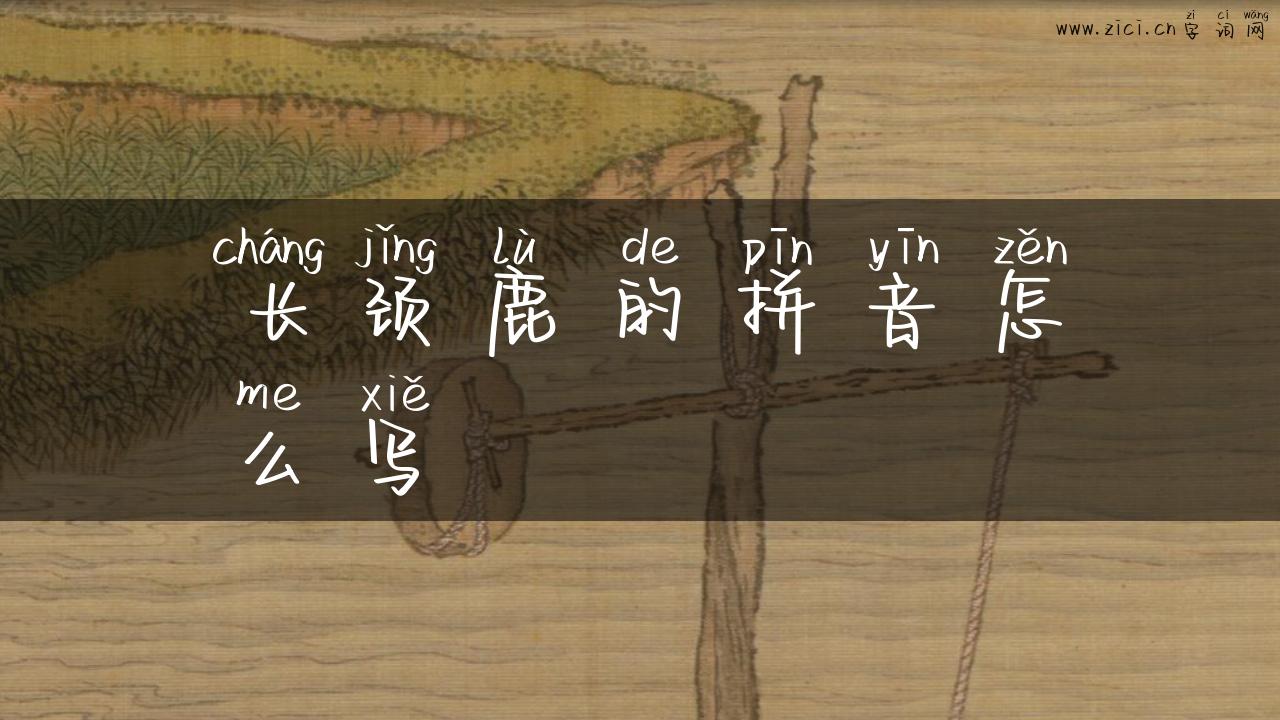 zì cí wǎng
www.zici.cn 字词网
cháng jǐng lù de pīn yīn zěn
长颈鹿的拼音怎
me xiě
么写